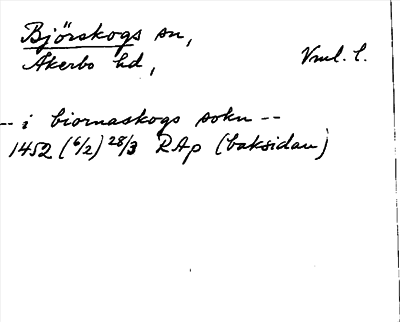 Björskogs sn,
Åkerbo hd, Vml. l.
-- i biornaskogs sokn --
1452 (6/2) 28/3 RAp (baksidan)